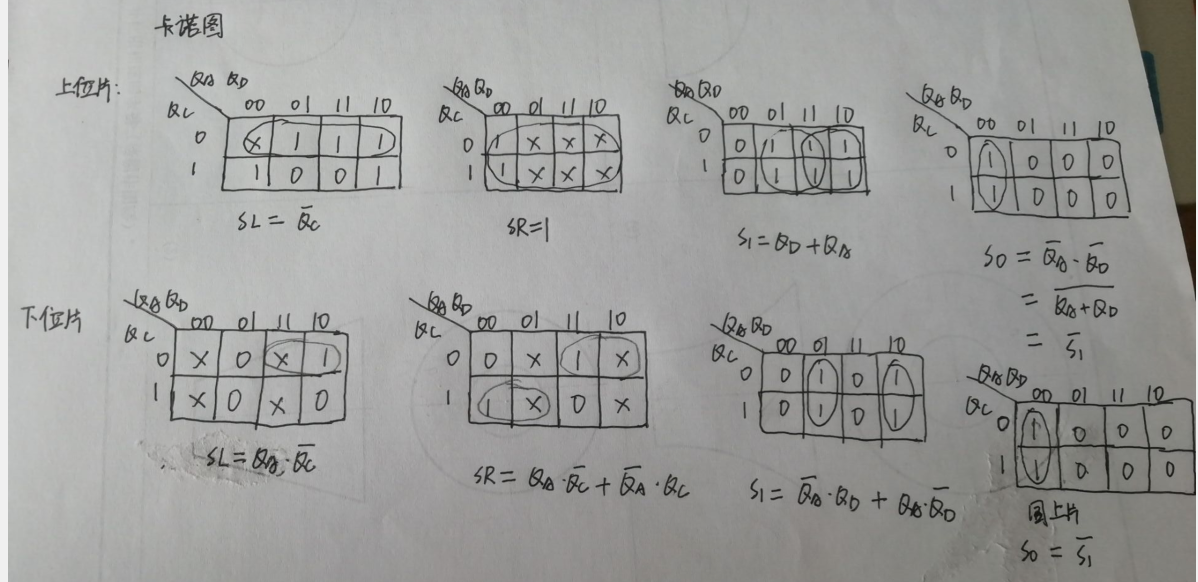 卡诺图
上位片:
QA QD
QC
00 01 11 10
0 X 1 1 1
1 1 0 0 1
SL = Q̄C
QA QD
QC
00 01 11 10
0 1 X X X
1 1 X X X
SR=1
QA QD
QC
00 01 11 10
0 0 1 1 1
1 0 1 1 1
S1 = QD + QA
QA QD
QC
00 01 11 10
0 1 0 0 0
1 1 0 0 0
S0 = Q̄A · Q̄D
= \overline{QA+QD}
= S̄1
下位片
QA QD
QC
00 01 11 10
0 X 0 X 1
1 X 0 X 0
SL = QA · Q̄C
QA QD
QC
00 01 11 10
0 0 X 1 X
1 1 X 0 X
SR = QA · Q̄C + Q̄A · QC
QA QD
QC
00 01 11 10
0 0 1 0 1
1 0 1 0 1
S1 = Q̄A · QD + QA · Q̄D
QA QD
QC
00 01 11 10
0 1 0 0 0
1 1 0 0 0
上片
S0 = S̄1